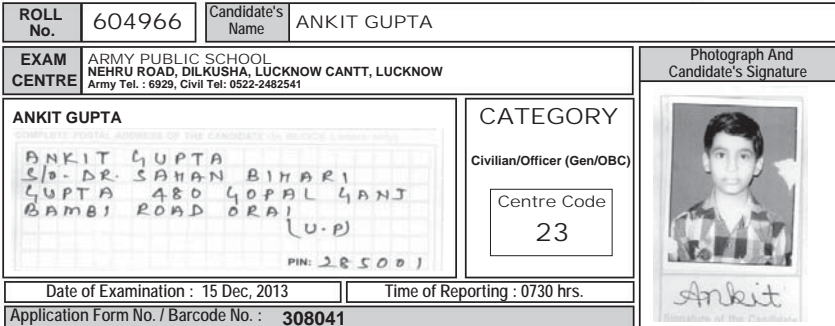 ROLL No. 604966 Candidate's Name ANKIT GUPTA
EXAM CENTRE
ARMY PUBLIC SCHOOL
NEHRU ROAD, DILKUSHA, LUCKNOW CANTT, LUCKNOW
Army Tel. : 6929, Civil Tel: 0522-2482541
Photograph And
Candidate's Signature
ANKIT GUPTA
COMPLETE POSTAL ADDRESS OF THE CANDIDATE (In BLOCK Letters only)
ANKIT GUPTA
S/o. DR. SAHAN BIHARI
GUPTA 480 GOPAL GANJ
BAMBI ROAD ORAI
(U.P)
PIN: 285001
CATEGORY
Civilian/Officer (Gen/OBC)
Centre Code
23
Ankit
Signature of the Candidate
Date of Examination : 15 Dec, 2013 Time of Reporting : 0730 hrs.
Application Form No. / Barcode No. : 308041